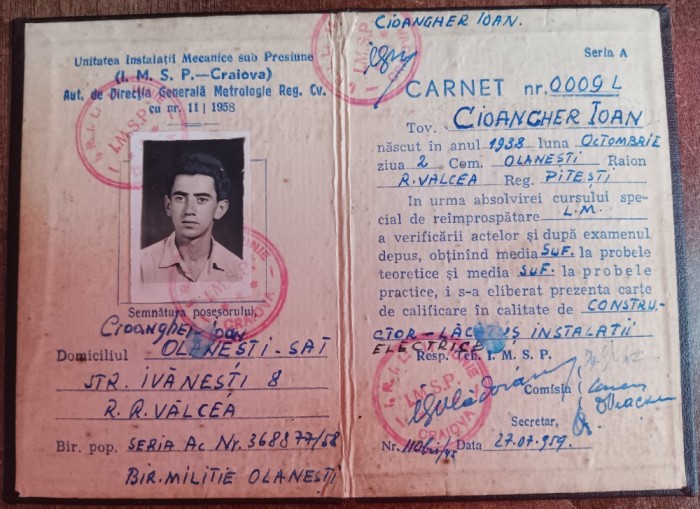 Unitatea Instalații Mecanice sub Presiune
(I. M. S. P.—Craiova)
Aut. de Direcția Generală Metrologie Reg. Cv.
cu nr. 11 | 1958
I.M.S.P.
CRAIOVA
Semnătura posesorului,
Cioangher Ioan
Domiciliul OLANEȘTI-SAT
STR. IVĂNEȘTI 8
R. R. VÂLCEA
Bir. pop. SERIA AC Nr. 368877/58
BIR. MILITIE OLANEȘTI
CIOANGHER IOAN.
I.M.S.P.
Seria A
CARNET nr. 0009 L
Tov. CIOANGHER IOAN
născut în anul 1938 luna OCTOMBRIE
ziua 2 Com. OLANEȘTI Raion
R. VALCEA Reg. PITEȘTI
In urma absolvirei cursului spe-
cial de reimprospătare L.M.
a verificării actelor și după examenul
depus, obținînd media SUF. la probele
teoretice și media SUF. la probele
practice, i s-a eliberat prezenta carte
de calificare în calitate de CONSTRU-
CTOR-LĂCĂTUȘ INSTALATII
ELECTRICE
Resp. Teh. I. M. S. P.
Comisia
I.M.S.P.
CRAIOVA
Secretar,
Nr. Data 27.07.959.